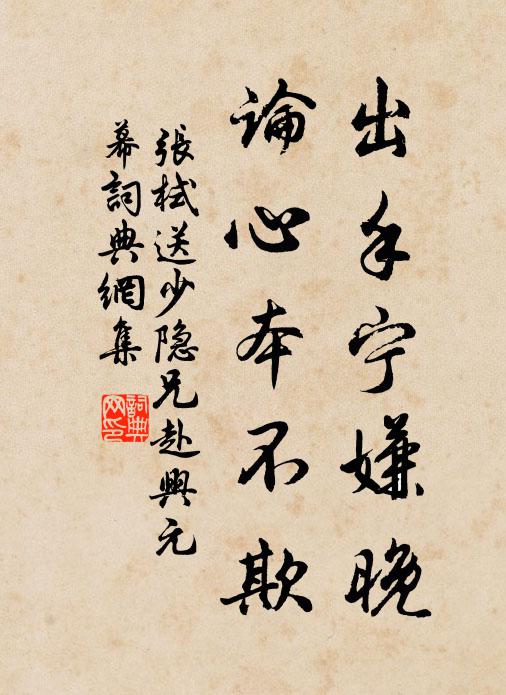 出手宁嫌晚
論心本不欺
張栻送少隐兄赴興元
幕詞典網集
詞典网印